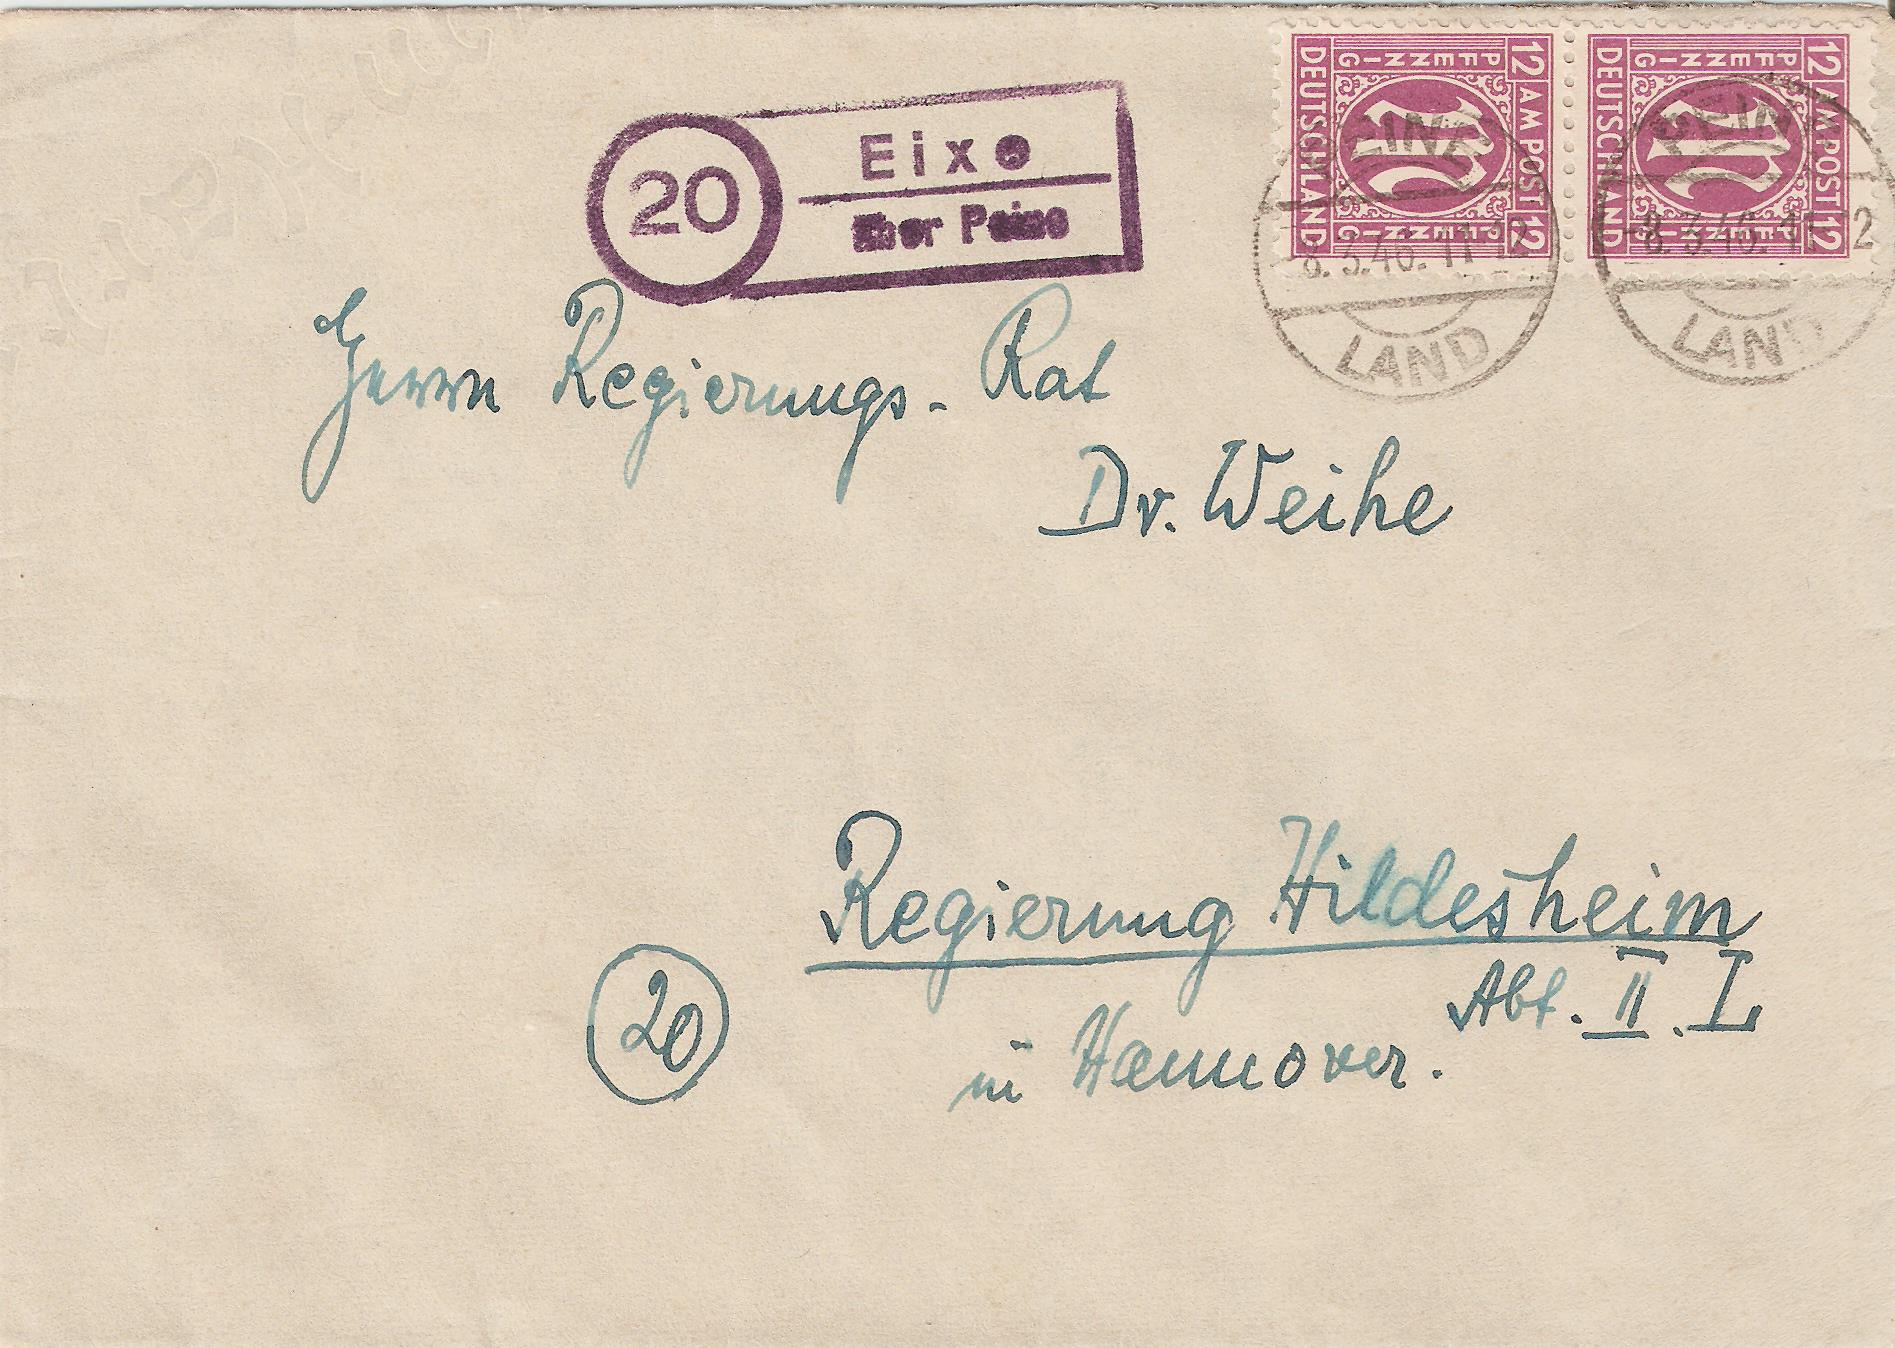 20
Eixe
über Peine
DEUTSCHLAND
PFENNIG
PFENNIG
12 AM POST 12
DEUTSCHLAND
PFENNIG
PFENNIG
12 AM POST 12
PEINE
8.3.46. 11-12
LAND
PEINE
-8.3.46. 11-12
LAND
Herrn Regierungs-Rat
Dr. Weihe
Regierung Hildesheim
Abt. II. L
20
in Hannover.